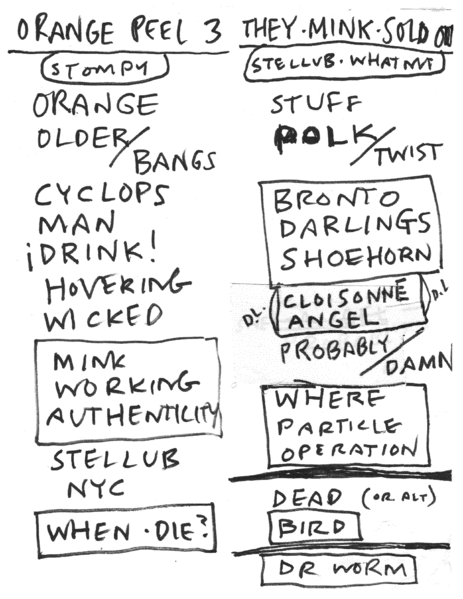 ORANGE PEEL 3
STOMPY
ORANGE
OLDER/
BANGS
CYCLOPS
MAN
¡DRINK!
HOVERING
WICKED
MINK
WORKING
AUTHENTICITY
STELLUB
NYC
WHEN · DIE?
THEY · MINK · SOLD OU
STELLUB · WHATNOT
STUFF
POLK/
TWIST
BRONTO
DARLINGS
SHOEHORN
D.L. CLOISONNE D.L
ANGEL
PROBABLY/
DAMN
WHERE
PARTICLE
OPERATION
DEAD (OR ALT)
BIRD
DR WORM